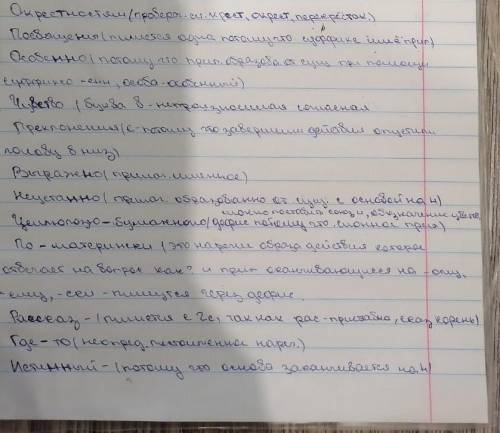 Окрестностям (провероч. сл. крест, окрест, перекрёсток)
Посвящена (пишется одна потому что суффикс имён прил)
Особенно (потому что прил образова от сущ при помощи
суффикса -енн, особа-особенный)
Чувство (буква в - непроизносимая согласная
Преклонения (е - потому что завершили действия опустили
голову в низ)
Выражено (прилаг. именное)
Неустанно (прилаг. образованно от сущ с основой на н)
можно поставить союз и, обозначение цвета
- бумажного (дефис потому что сложное прил)
По - матерински (это наречие образа действия которое
отвечает на вопрос как? и при оканчивающиеся на -ому,
-ему, -ски - пишутся через дефис.
Рассказ - (пишется с 2с, так как рас-приставка, сказ корень)
Где - то (неопред. местоименное нареч.)
Истинный - (потому что основа заканчивается на н)